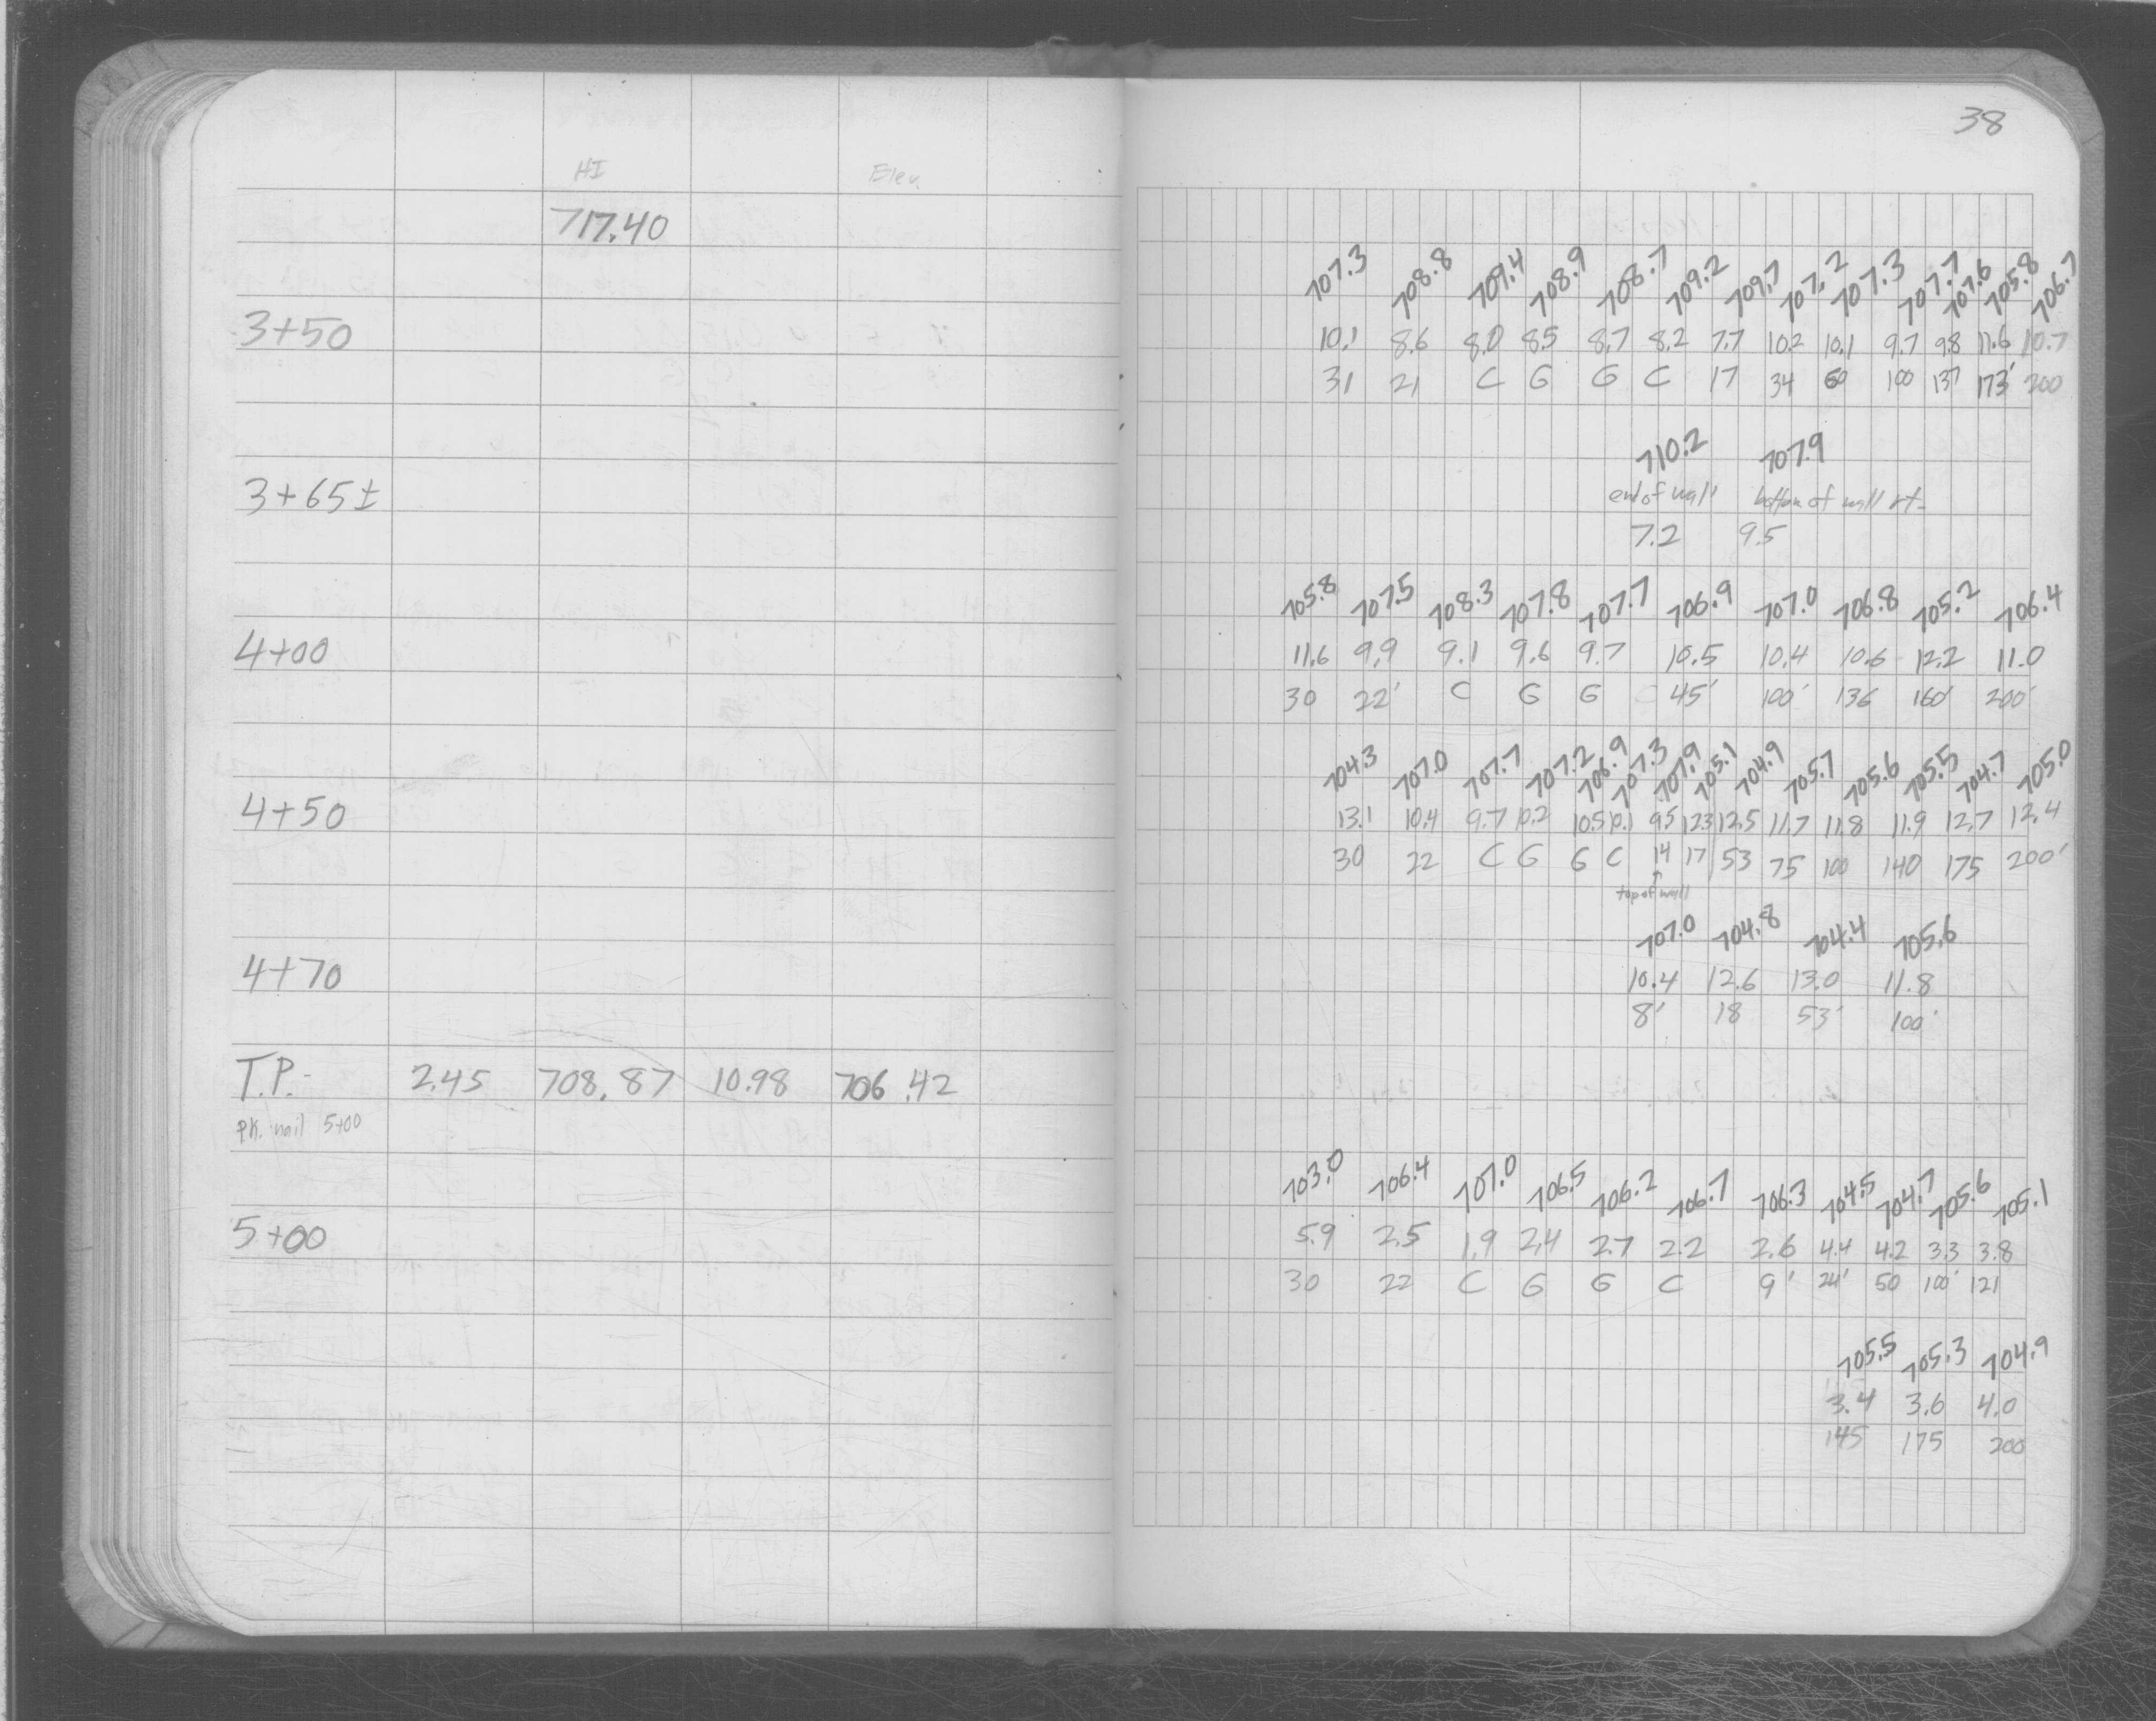 38
HI Elev.
717.40
107.3 108.8 109.4 108.9 108.7 109.2 109.7 107.2 107.3 107.7 107.6 105.8 106.7
3+50 10.1 8.6 8.0 8.5 8.7 8.2 7.7 10.2 10.1 9.7 9.8 11.6 10.7
31 21 C G G C 17 34 60 100 137 173' 200
710.2 707.9
3+65± end of wall bottom of wall rt.
7.2 9.5
705.8 707.5 708.3 707.8 707.7 706.9 707.0 706.8 705.2 706.4
4+00 11.6 9.9 9.1 9.6 9.7 10.5 10.4 10.6 12.2 11.0
30 22' C G G 45' 100' 136 160' 200'
704.3 707.0 707.7 707.2 706.9 707.3 707.9 705.1 704.9 705.7 705.6 705.5 704.7 705.0
4+50 13.1 10.4 9.7 10.2 10.5 10.1 9.5 12.3 12.5 11.7 11.8 11.9 12.7 12.4
30 22 C G G C 14 17 53 75 100 140 175 200'
top of wall
707.0 704.8 704.4 705.6
4+70 10.4 12.6 13.0 11.8
8' 18 53' 100'
T.P. 2.45 708.87 10.98 706.42
P.K. nail 5+00
703.0 706.4 707.0 706.5 706.2 706.7 706.3 704.5 704.7 705.6 705.1
5+00 5.9 2.5 1.9 2.4 2.7 2.2 2.6 4.4 4.2 3.3 3.8
30 22 C G G C 9' 24' 50 100' 121
705.5 705.3 704.9
3.4 3.6 4.0
145 175 200